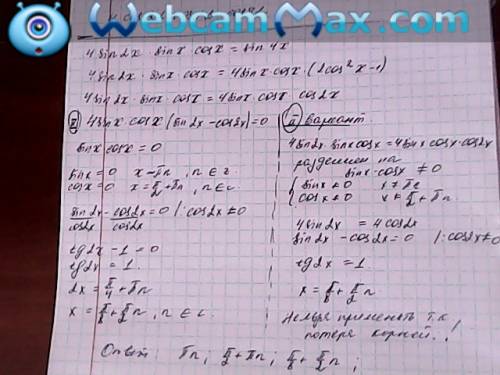 WebcamMax.com
4 sin 2x · sin x cos x = sin 4x
4 sin 2x · sin x cos x = 4 sin x cos x · (2cos²x − 1)
4 sin 2x · sin x cos x = 4 sin x cos x · cos 2x
4 sin x cos x (sin 2x − cos 2x) = 0
sin x cos x = 0
sin x = 0 x = πn, n ∈ z
cos x = 0 x = π/2 + πn, n ∈ z
sin 2x/cos 2x − cos 2x/cos 2x = 0 | : cos 2x ≠ 0
tg 2x − 1 = 0
tg 2x = 1
2x = π/4 + πn
x = π/8 + π/2 n, n ∈ z
II Вариант
4 sin 2x · sin x cos x = 4 sin x cos x · cos 2x
разделим на
sin x · cos x ≠ 0
{ sin x ≠ 0 x ≠ πn
cos x ≠ 0 x ≠ π/2 + πn
4 sin 2x = 4 cos 2x
sin 2x − cos 2x = 0 | : cos 2x ≠ 0
tg 2x = 1
x = π/8 + π/2 n
Нельзя применять т.к
потеря корней..!
Ответ: πn; π/2 + πn; π/8 + π/2 n;